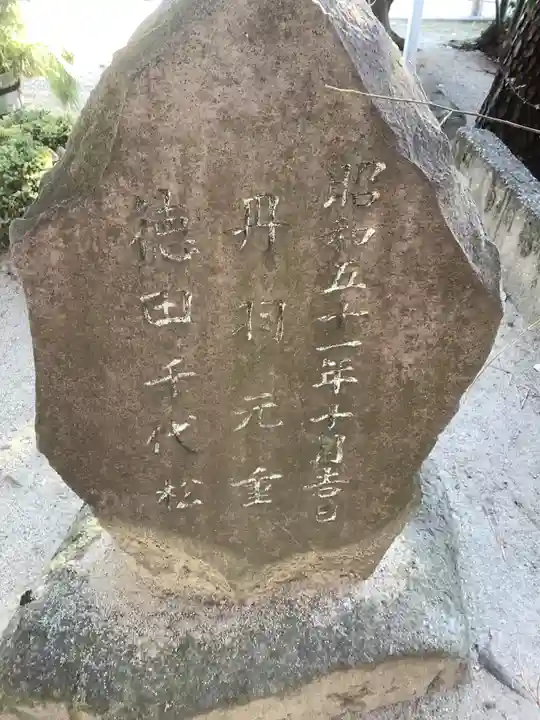 昭和五十一年十月吉日
丹羽元重
徳田千代松